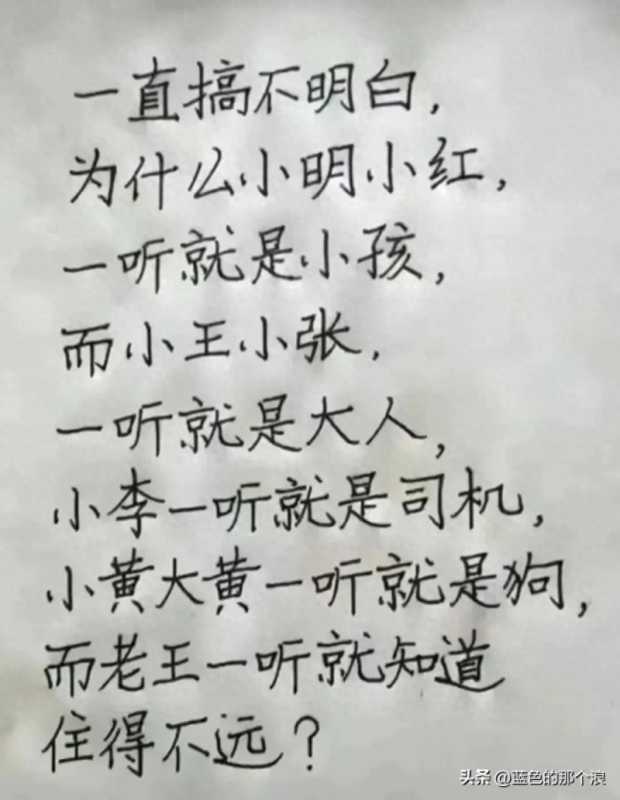 一直搞不明白,
为什么小明小红,
一听就是小孩,
而小王小张,
一听就是大人,
小李一听就是司机,
小黄大黄一听就是狗,
而老王一听就知道
住得不远?
头条 @蓝色的那个浪